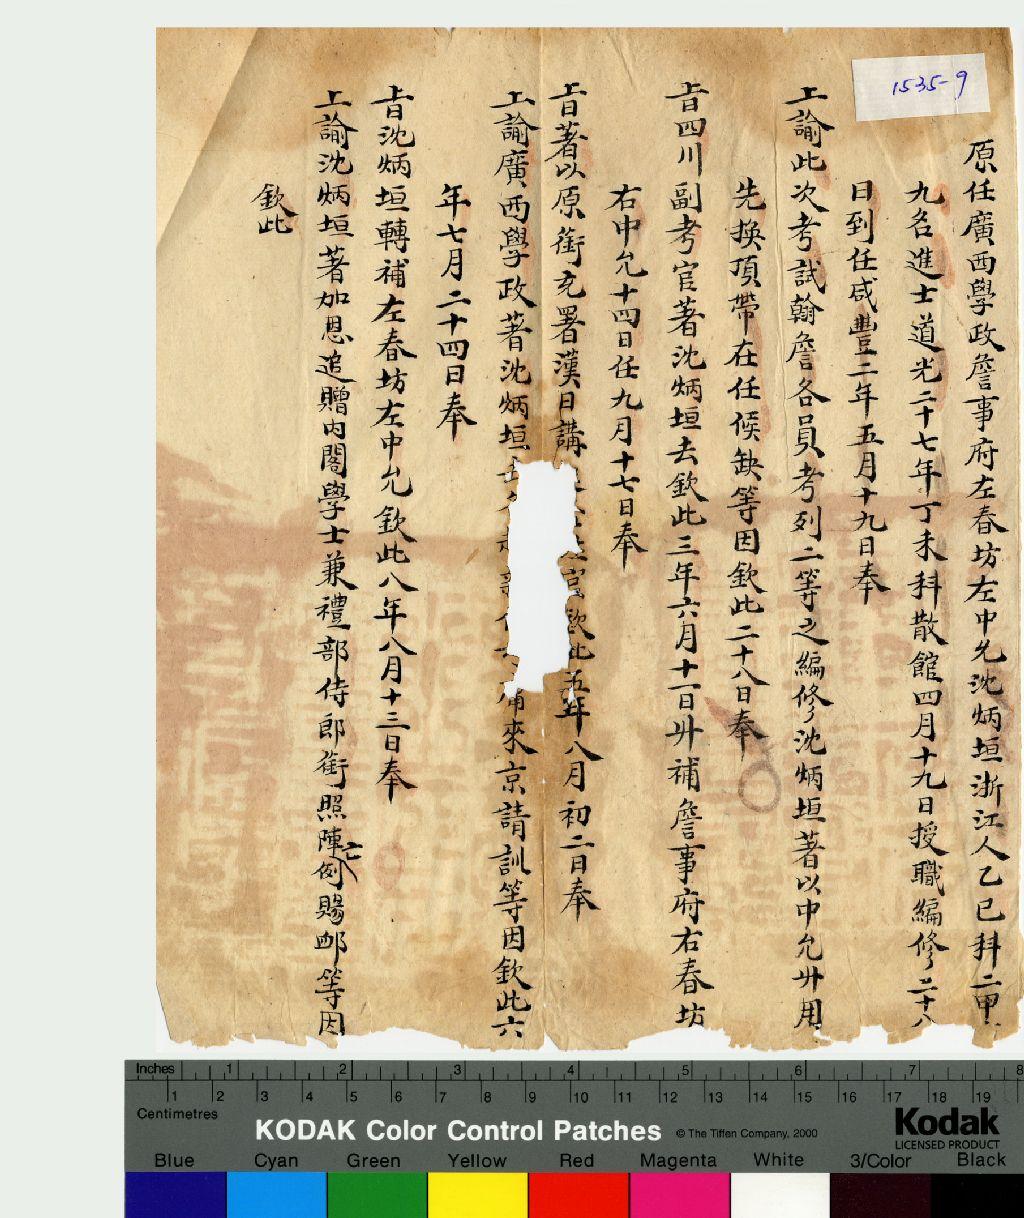 1535-9
原任廣西學政詹事府左春坊左中允沈炳垣浙江人乙巳科二甲
九名進士道光二十七年丁未科散館四月十九日授職編修二十八
日到任咸豐二年五月十九日奉
上諭此次考試翰詹各員考列二等之編修沈炳垣著以中允升用
先換頂帶在任候缺等因欽此二十八日奉
旨四川副考官著沈炳垣去欽此三年六月十一日升補詹事府右春坊
右中允十四日任九月十七日奉
旨著以原銜充署漢日講官欽此五年八月初二日奉
上諭廣西學政著沈炳垣去來京請訓等因欽此六
年七月二十四日奉
旨沈炳垣轉補左春坊左中允欽此八年八月十三日奉
上諭沈炳垣著加恩追贈內閣學士兼禮部侍郎銜照陣亡例賜卹等因
欽此
Inches 1 2 3 4 5 6 7 8
Centimetres 1 2 3 4 5 6 7 8 9 10 11 12 13 14 15 16 17 18 19
KODAK Color Control Patches © The Tiffen Company, 2000
Kodak
LICENSED PRODUCT
Blue Cyan Green Yellow Red Magenta White 3/Color Black